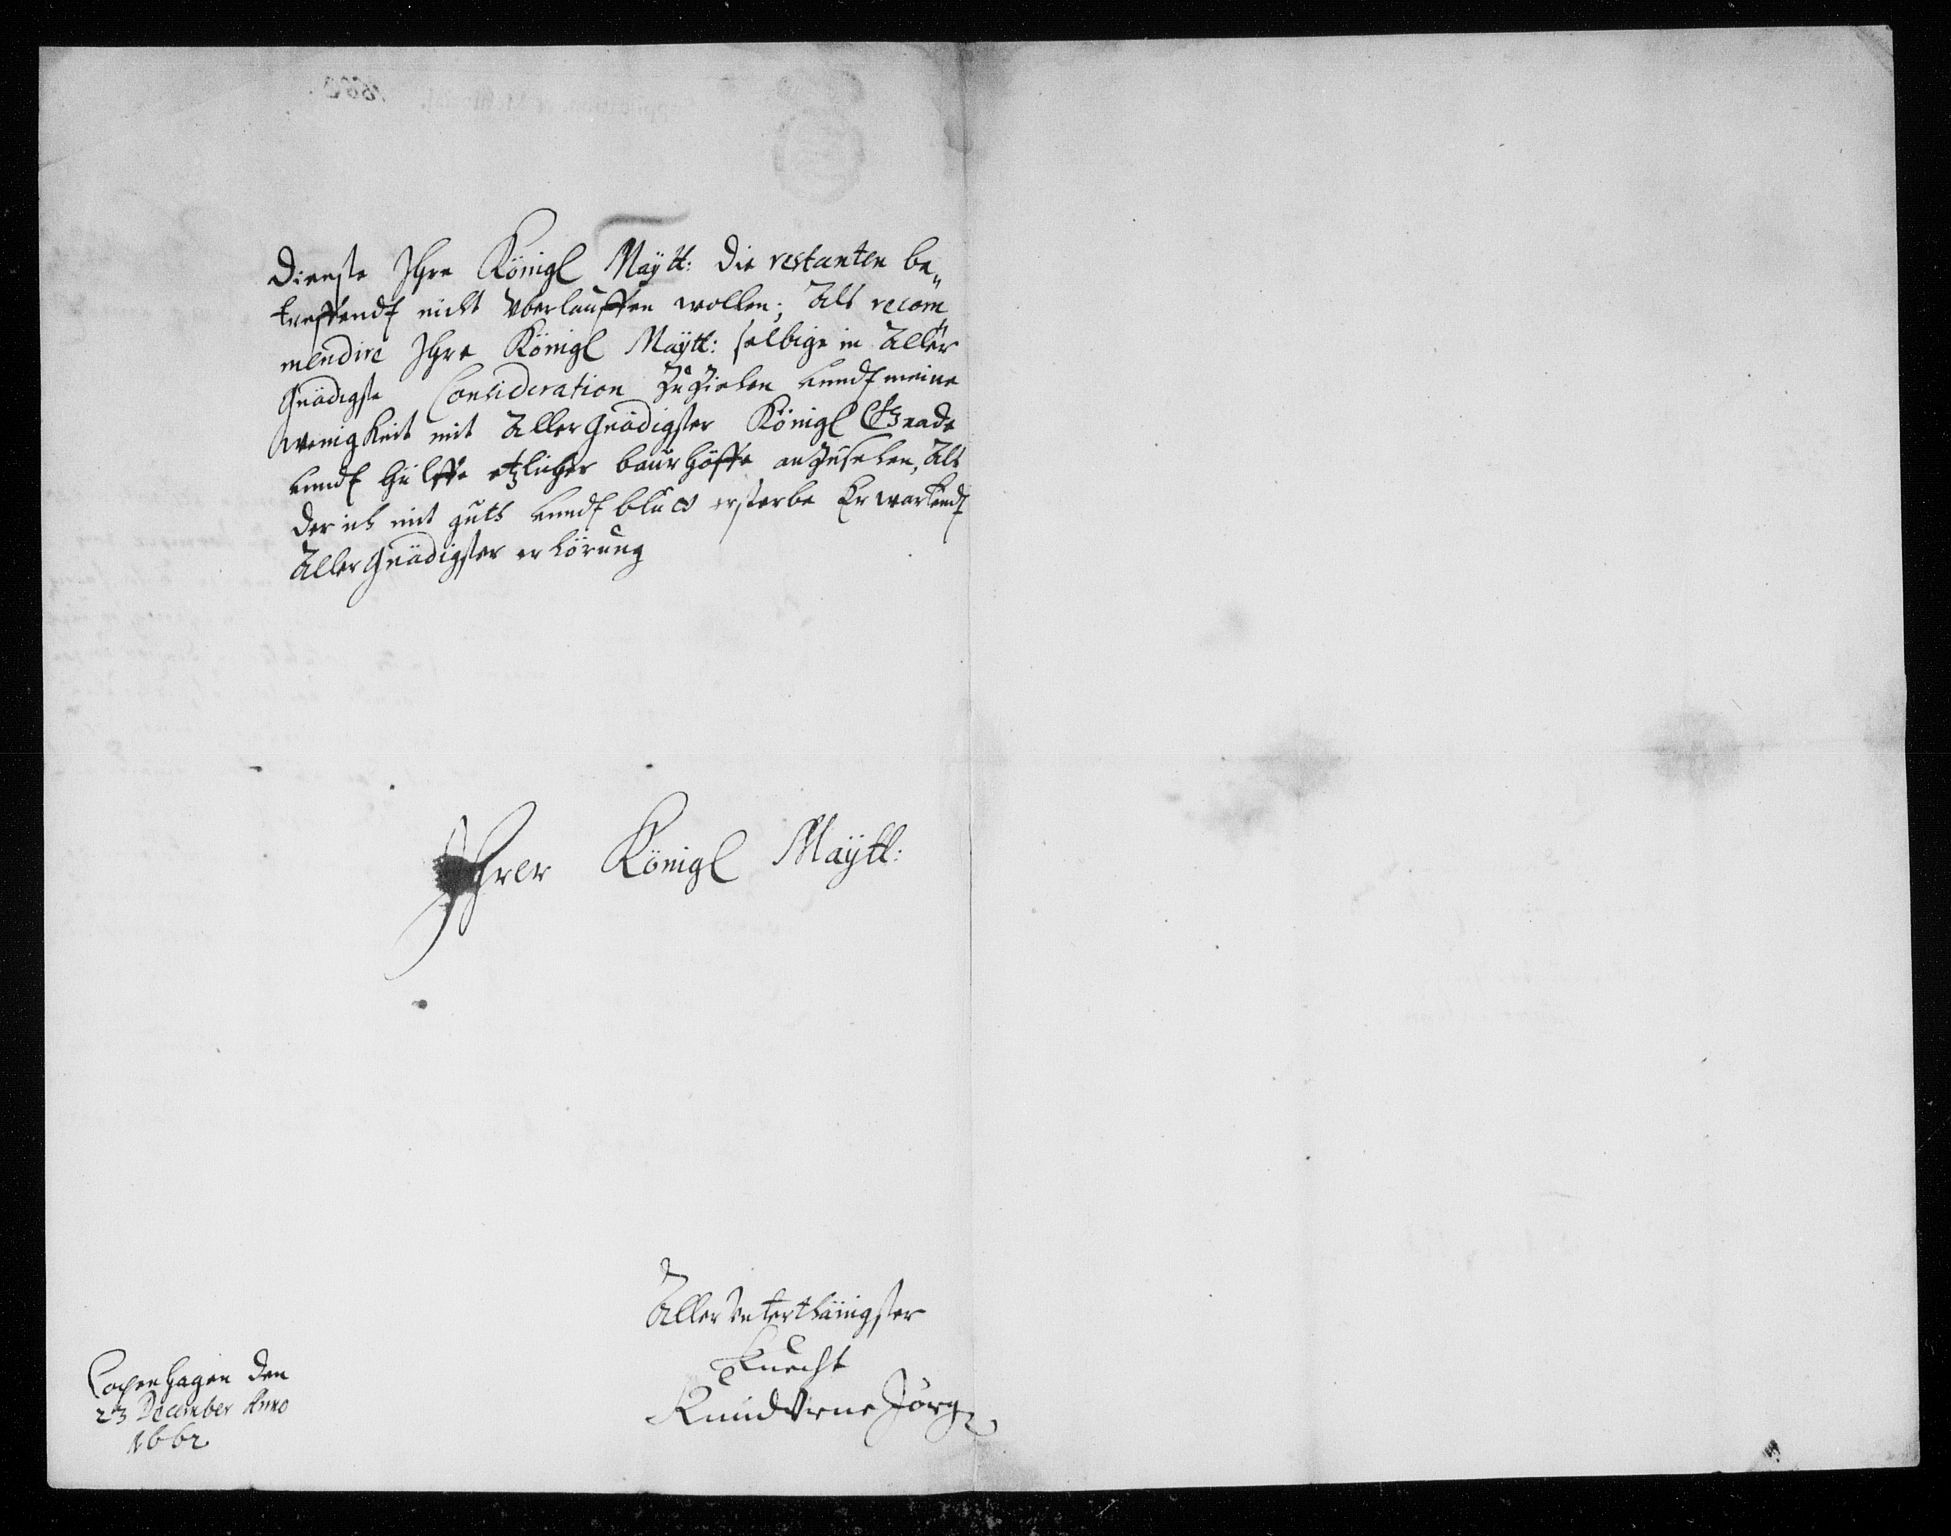 Dienste Ihre Königl Maÿtt: die restanten be„
treffendt nicht vberlauffen wollen; Als recom„
mendire Ihre Königl Maÿtt: selbige in Aller
Gnädigste Consideration zu ziehen unndt meine
wenigkeit mit AllerGnädigster Königl Gnade
unndt hülffe etzlicher baurhöffe anzusehen, Als
der ich mit guth unndt blut ersterbe Erwartendt
AllerGnädigster erhörung
Ihrer Königl Maÿtt:
AllerUnterthänigster
Knecht
Copenhagen den
23 December Anno
1662